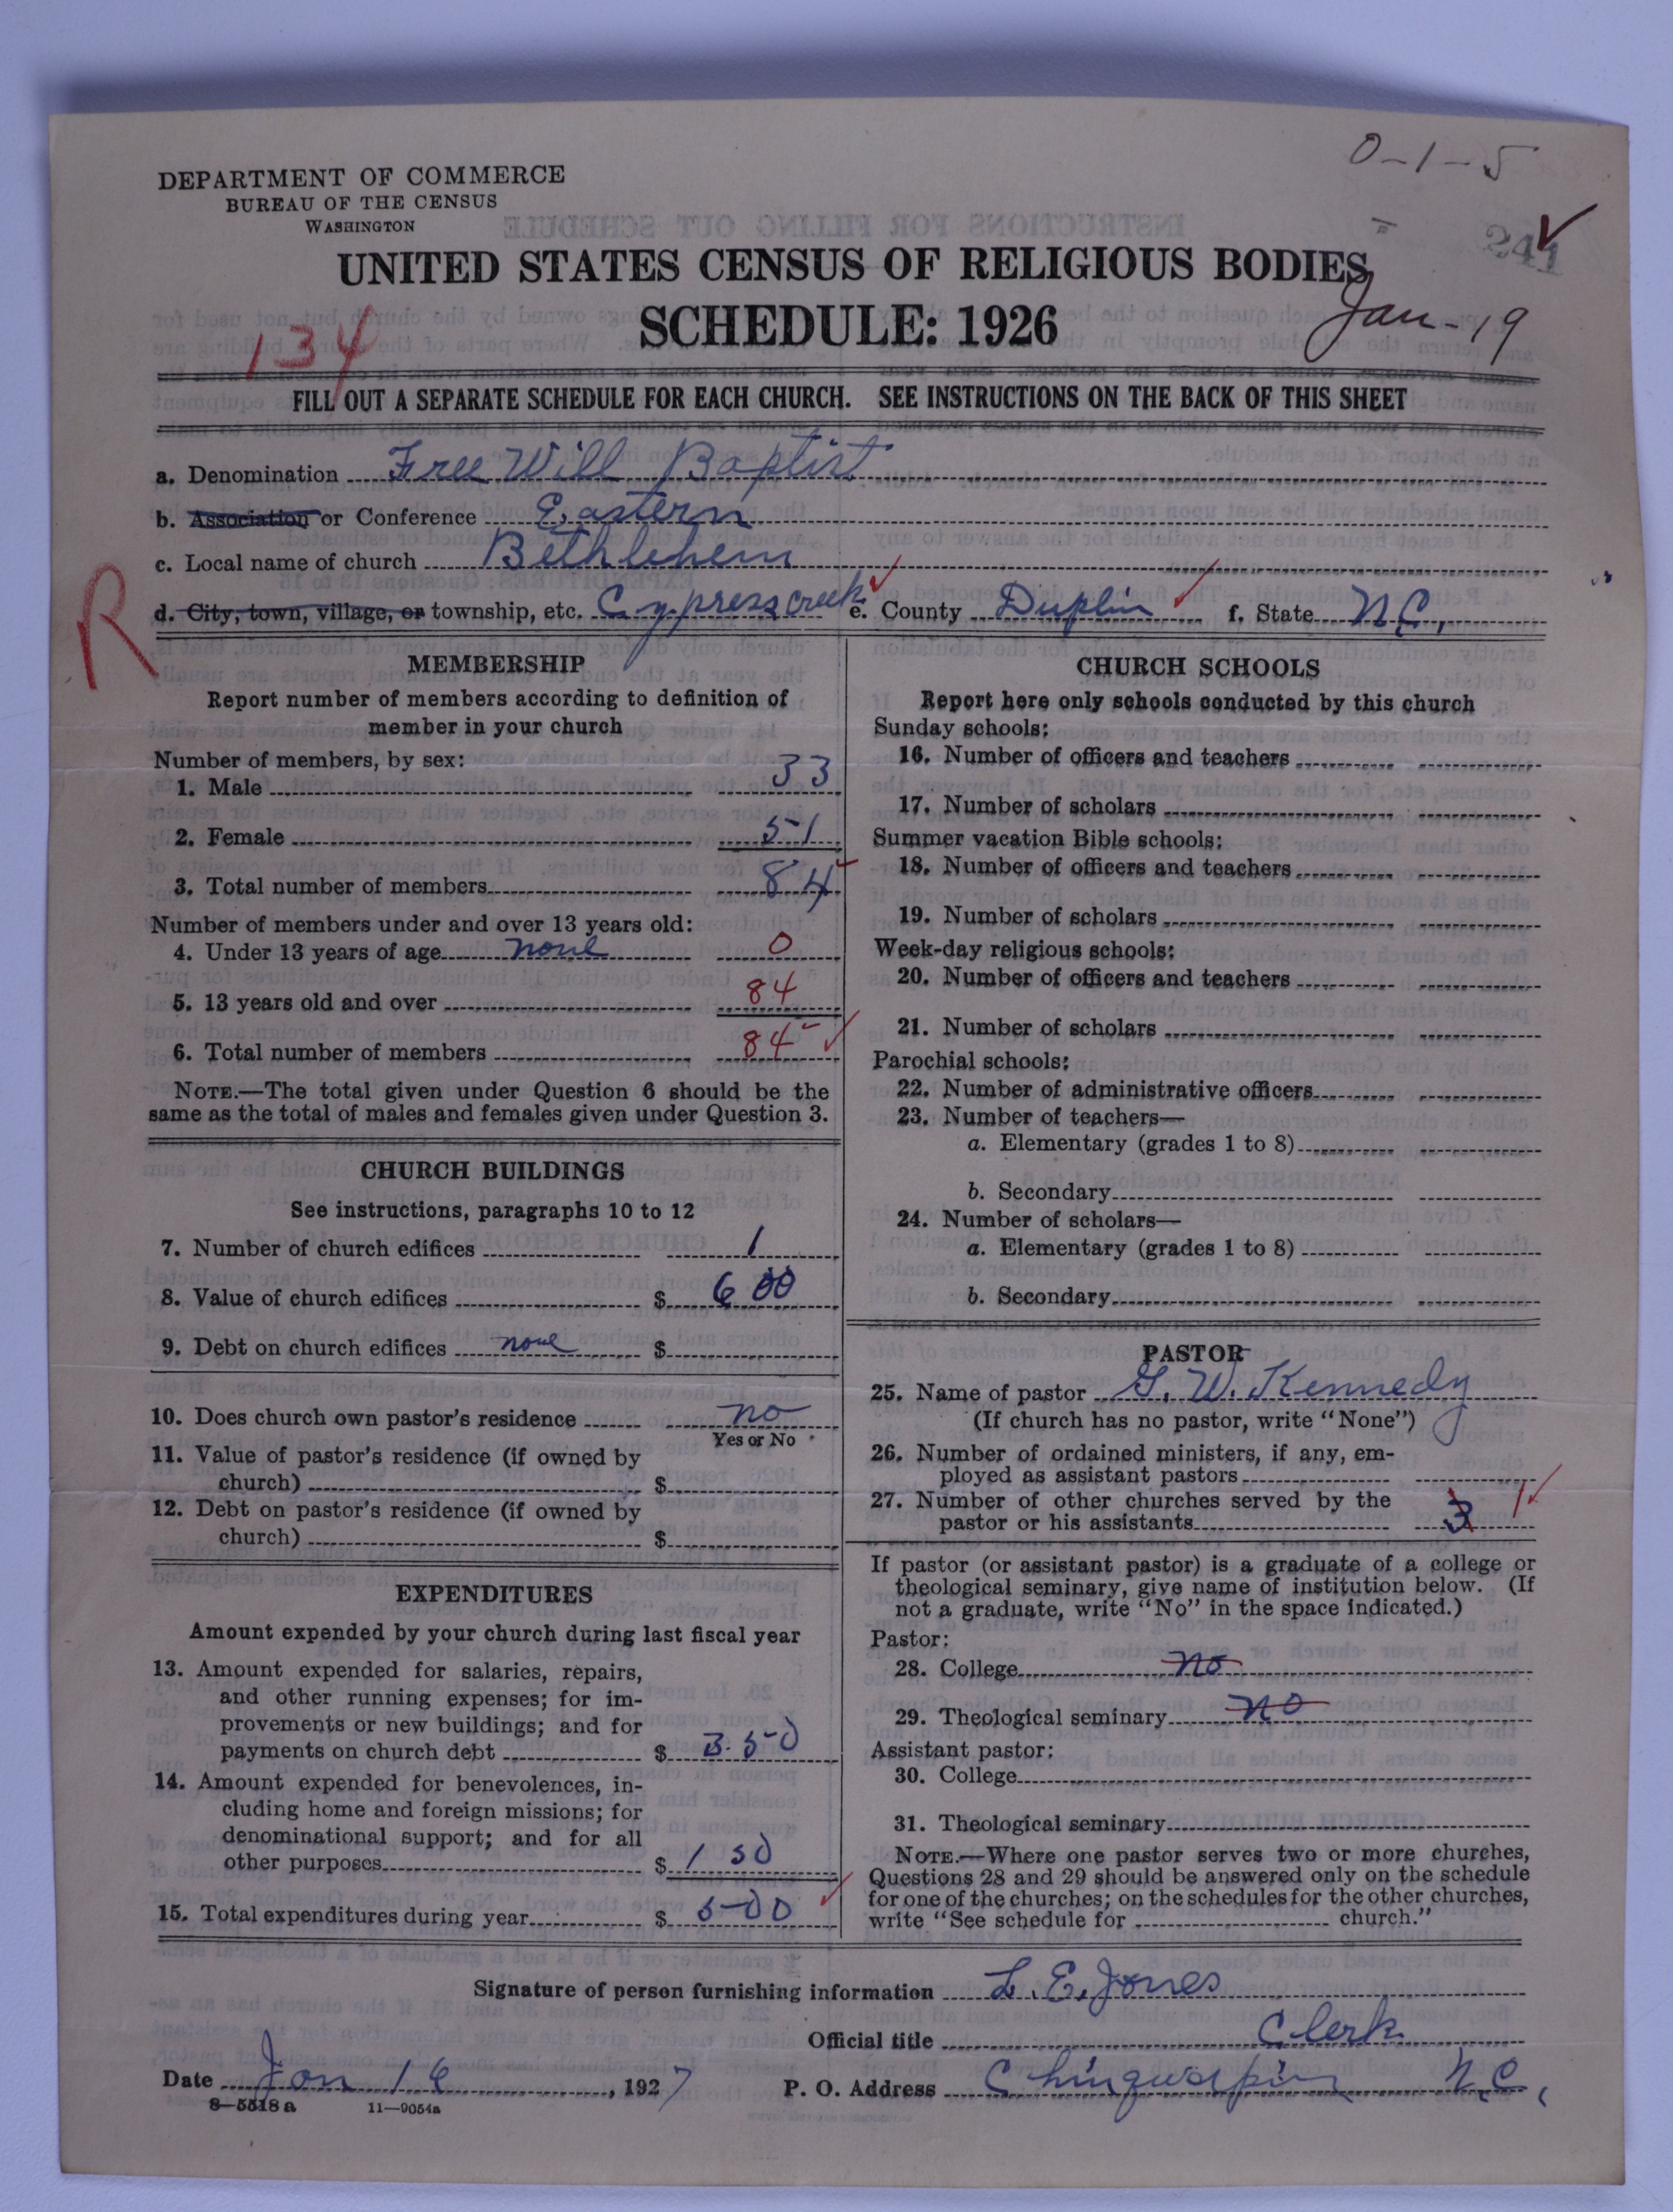 0-1-5
DEPARTMENT OF COMMERCE
BUREAU OF THE CENSUS
WASHINGTON
241
UNITED STATES CENSUS OF RELIGIOUS BODIES
SCHEDULE: 1926
Jan-19
134
FILL OUT A SEPARATE SCHEDULE FOR EACH CHURCH. SEE INSTRUCTIONS ON THE BACK OF THIS SHEET
a. Denomination Free Will Baptist
b. Association or Conference Eastern
c. Local name of church Bethlehem
R
d. City, town, village, or township, etc. Cypress creek e. County Duplin f. State N.C,
MEMBERSHIP
Report number of members according to definition of
member in your church
Number of members, by sex:
1. Male 33
2. Female 51
3. Total number of members 84
Number of members under and over 13 years old:
4. Under 13 years of age none 0
5. 13 years old and over 84
6. Total number of members 84
NOTE.—The total given under Question 6 should be the
same as the total of males and females given under Question 3.
CHURCH BUILDINGS
See instructions, paragraphs 10 to 12
7. Number of church edifices 1
8. Value of church edifices $ 600
9. Debt on church edifices none $
10. Does church own pastor's residence no
Yes or No
11. Value of pastor's residence (if owned by
church) $
12. Debt on pastor's residence (if owned by
church) $
EXPENDITURES
Amount expended by your church during last fiscal year
13. Amount expended for salaries, repairs,
and other running expenses; for im-
provements or new buildings; and for
payments on church debt $ 350
14. Amount expended for benevolences, in-
cluding home and foreign missions; for
denominational support; and for all
other purposes $ 150
15. Total expenditures during year $ 500
CHURCH SCHOOLS
Report here only schools conducted by this church
Sunday schools:
16. Number of officers and teachers
17. Number of scholars
Summer vacation Bible schools:
18. Number of officers and teachers
19. Number of scholars
Week-day religious schools:
20. Number of officers and teachers
21. Number of scholars
Parochial schools:
22. Number of administrative officers
23. Number of teachers—
a. Elementary (grades 1 to 8)
b. Secondary
24. Number of scholars—
a. Elementary (grades 1 to 8)
b. Secondary
PASTOR
25. Name of pastor G. W. Kennedy
(If church has no pastor, write "None")
26. Number of ordained ministers, if any, em-
ployed as assistant pastors
27. Number of other churches served by the
pastor or his assistants 3 1
If pastor (or assistant pastor) is a graduate of a college or
theological seminary, give name of institution below. (If
not a graduate, write "No" in the space indicated.)
Pastor:
28. College no
29. Theological seminary no
Assistant pastor:
30. College
31. Theological seminary
NOTE.—Where one pastor serves two or more churches,
Questions 28 and 29 should be answered only on the schedule
for one of the churches; on the schedules for the other churches,
write "See schedule for church."
Signature of person furnishing information L. E. Jones
Official title Clerk
Date Jan 16, 1927 P. O. Address Chinquapin N.C,
8—5518 a 11—9054a